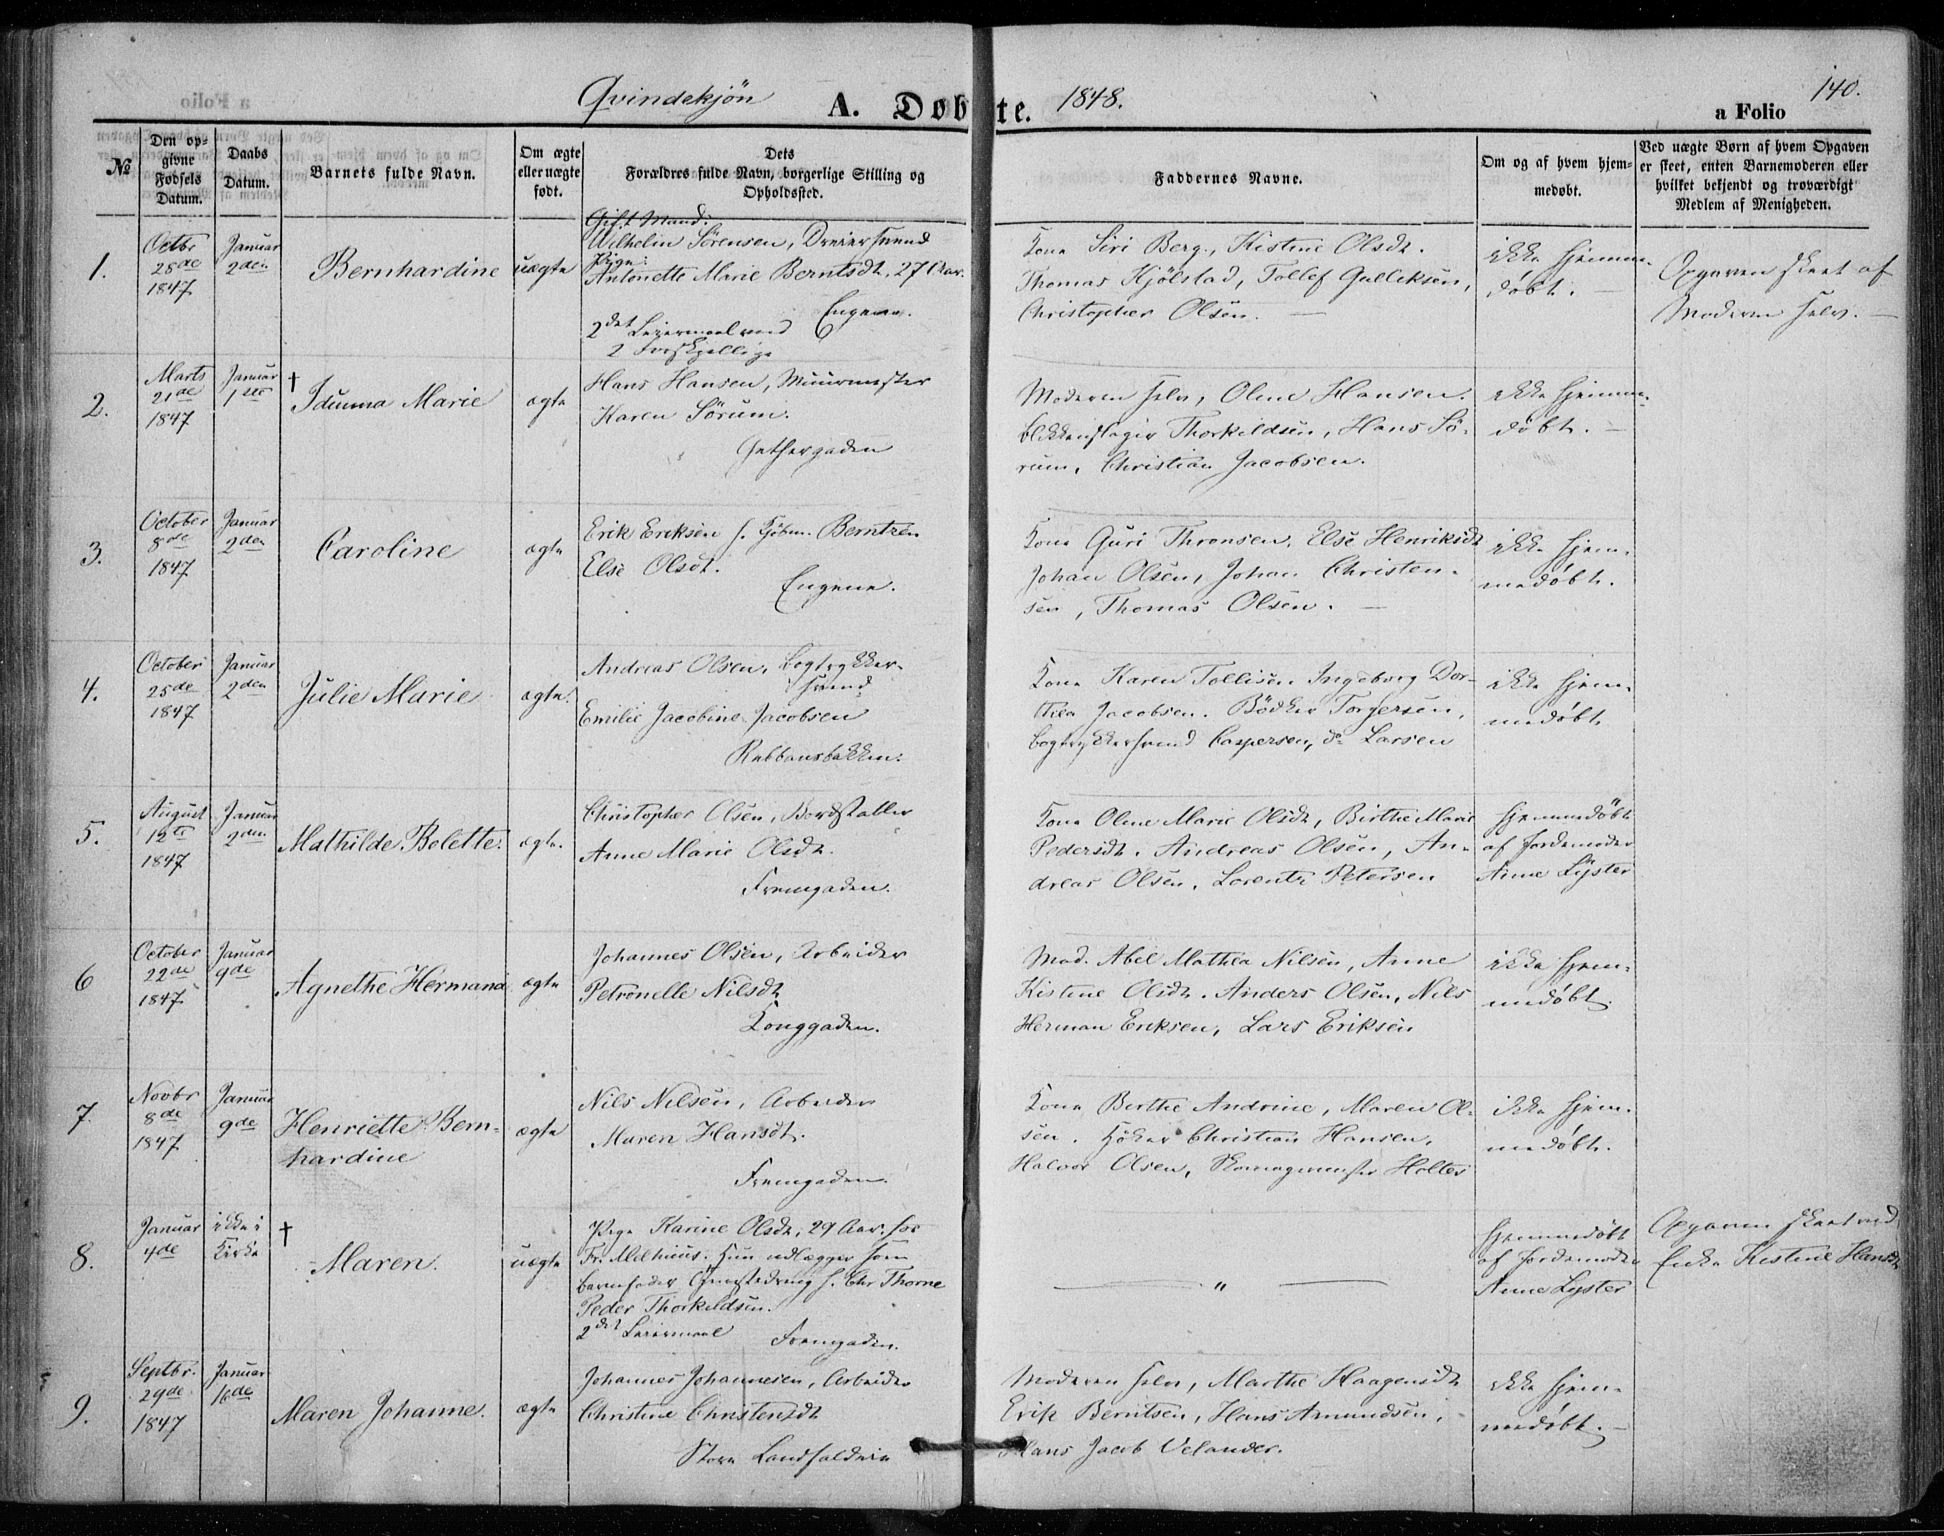 Qvindekjön A. Døbte. 1848. a Folio 140.
№
Den opgivne Fødsels Datum.
Daabs Datum.
Barnets fulde Navn.
Om ægte eller uægte født.
Dets Forældres fulde Navn, borgerlige Stilling og Opholdssted.
Faddernes Navne.
Om og af hvem hjemmedøbt.
Ved uægte Børn af hvem Opgaven er skeet, enten Barnemoderen eller hvilket bekjendt og troværdigt Medlem af Menigheden.
1.
Octbr
28de
1847
Januar
2den
Bernhardine
uægte
Gift Mand:
Wilhelm Sörensen, Dreiersvend
Pige:
Antonette Marie Berntsdt, 27 Aar.
Engene.
2det Leiermaal med
2 Forskjellige
Kone Siri Berg, Kistine Olsdt.
Thomas Hjölstad, Tollef Gulliksen,
Christopher Olsen. —
ikke hjemme-
døbt. —
Opgaven skeet af
Moderen selv. —
2.
Marts
21de
1847
Januar
1ste
† Idunna Marie
ægte
Hans Hansen, Muurmester
Karen Sörum.
Gethergaden
Moderen selv, Oline Hansen.
Blikkenslager Thorkildsen, Hans Sö-
rum, Christian Jacobsen.
ikke hjemme-
døbt. —
3.
October
8de
1847
Januar
2den
Caroline
ægte
Erik Eriksen h. Kjöbm. Berntzen
Else Olsdt.
Engene.
Kone Guri Thronsen, Else Henriksdt
Johan Olsen, Johan Christen-
sen, Thomas Olsen. —
ikke hjem-
medøbt.
4.
October
25de
1847
Januar
2den
Julie Marie
ægte.
Andreas Olsen, Bogtrykker-
svend
Emilie Jacobine Jacobsen
Rabbansbakken.
Kone Karen Tollisen Ingeborg Dor-
thea Jacobsen. Bödker Torgersen,
Bogtrykkersvend Caspersen, do Larsen
ikke hjem-
medøbt
5.
August
12te
1847
Januar
2den
Mathilde Bolette.
ægte.
Christopher Olsen, Bordstabler
Anne Marie Olsdt.
Fremgaden.
Kone Oline Marie Olsdt, Birthe Marie
Pedersdt. Andreas Olsen, An-
dreas Olsen, Lorentz Petersen
Hjemmedöbt
af Jordemoder
Anne Lyster
6
October
22de
1847
Januar
9de
Agnethe Hermana
ægte
Johannes Olsen, Arbeider
Petronelle Nilsdt
Konggaden.
Mad. Abel Mathea Nilsen, Anne
Kistine Olsdt. Anders Olsen, Nils
Herman Eriksen, Lars Eriksen
ikke hjem-
medøbt.
7.
Novbr
8de
1847
Januar
9de
Henriette Bern-
hardine
ægte
Nils Nilsen, Arbeider
Maren Hansdt.
Fremgaden.
Kone Berthe Andrine, Maren Ol-
sen. Höker Christian Hansen,
Halvor Olsen, Skomagermester Holter
ikke hjem-
medøbt.
8.
Januar
4de
ikke i
Kirke
† Maren.
uægte
Pige Karine Olsdt, 29 Aar. hos
Fr. Milhuus. Hun udlægger som
barnefader h. Chr Thorne
Peder Thorkildsen.
2det Leiermaal Fremgaden.
— " —
Hjemmedöbt
af Jordemoder
Anne Lyster
Opgaven skeet ved
Enke Kistine Hansdt
9.
Septbr.
29de
1847
Januar
16de
Maren Johanne.
ægte
Johannes Johannesen, Arbeider
Christine Christensdt
Store Landfaldöie
Moderen selv, Marthe Haagensdt
Erik Berntsen, Hans Amundsen,
Hans Jacob Velander.
ikke hjem-
medøbt. —